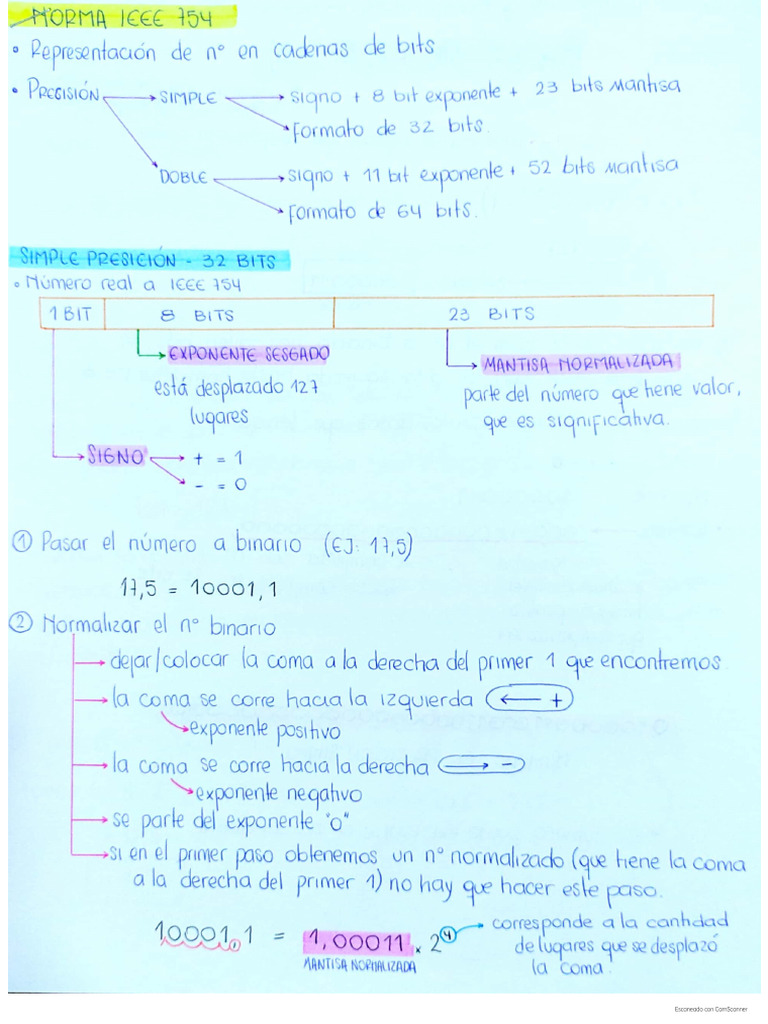 NORMA IEEE 754
• Representación de nº en cadenas de bits
• PRECISIÓN → SIMPLE → signo + 8 bit exponente + 23 bits Mantisa
→ Formato de 32 bits.
→ DOBLE → signo + 11 bit exponente + 52 bits mantisa
→ Formato de 64 bits.
SIMPLE PRESICIÓN - 32 BITS
• Número real a IEEE 754
1 BIT 8 BITS 23 BITS
→ EXPONENTE SESGADO
está desplazado 127
lugares
→ MANTISA NORMALIZADA
parte del número que tiene valor,
que es significativa.
→ SIGNO → + = 1
→ - = 0
① Pasar el número a binario (EJ: 17,5)
17,5 = 10001,1
② Normalizar el nº binario
→ dejar/colocar la coma a la derecha del primer 1 que encontremos
→ la coma se corre hacia la izquierda (← +)
→ exponente positivo
→ la coma se corre hacia la derecha (→ -)
→ exponente negativo
→ se parte del exponente "0"
→ si en el primer paso obtenemos un nº normalizado (que tiene la coma
a la derecha del primer 1) no hay que hacer este paso.
10001,1 = 1,00011 x 2⁴ → corresponde a la cantidad
de lugares que se desplazó
la coma.
MANTISA NORMALIZADA
Escaneado con CamScanner